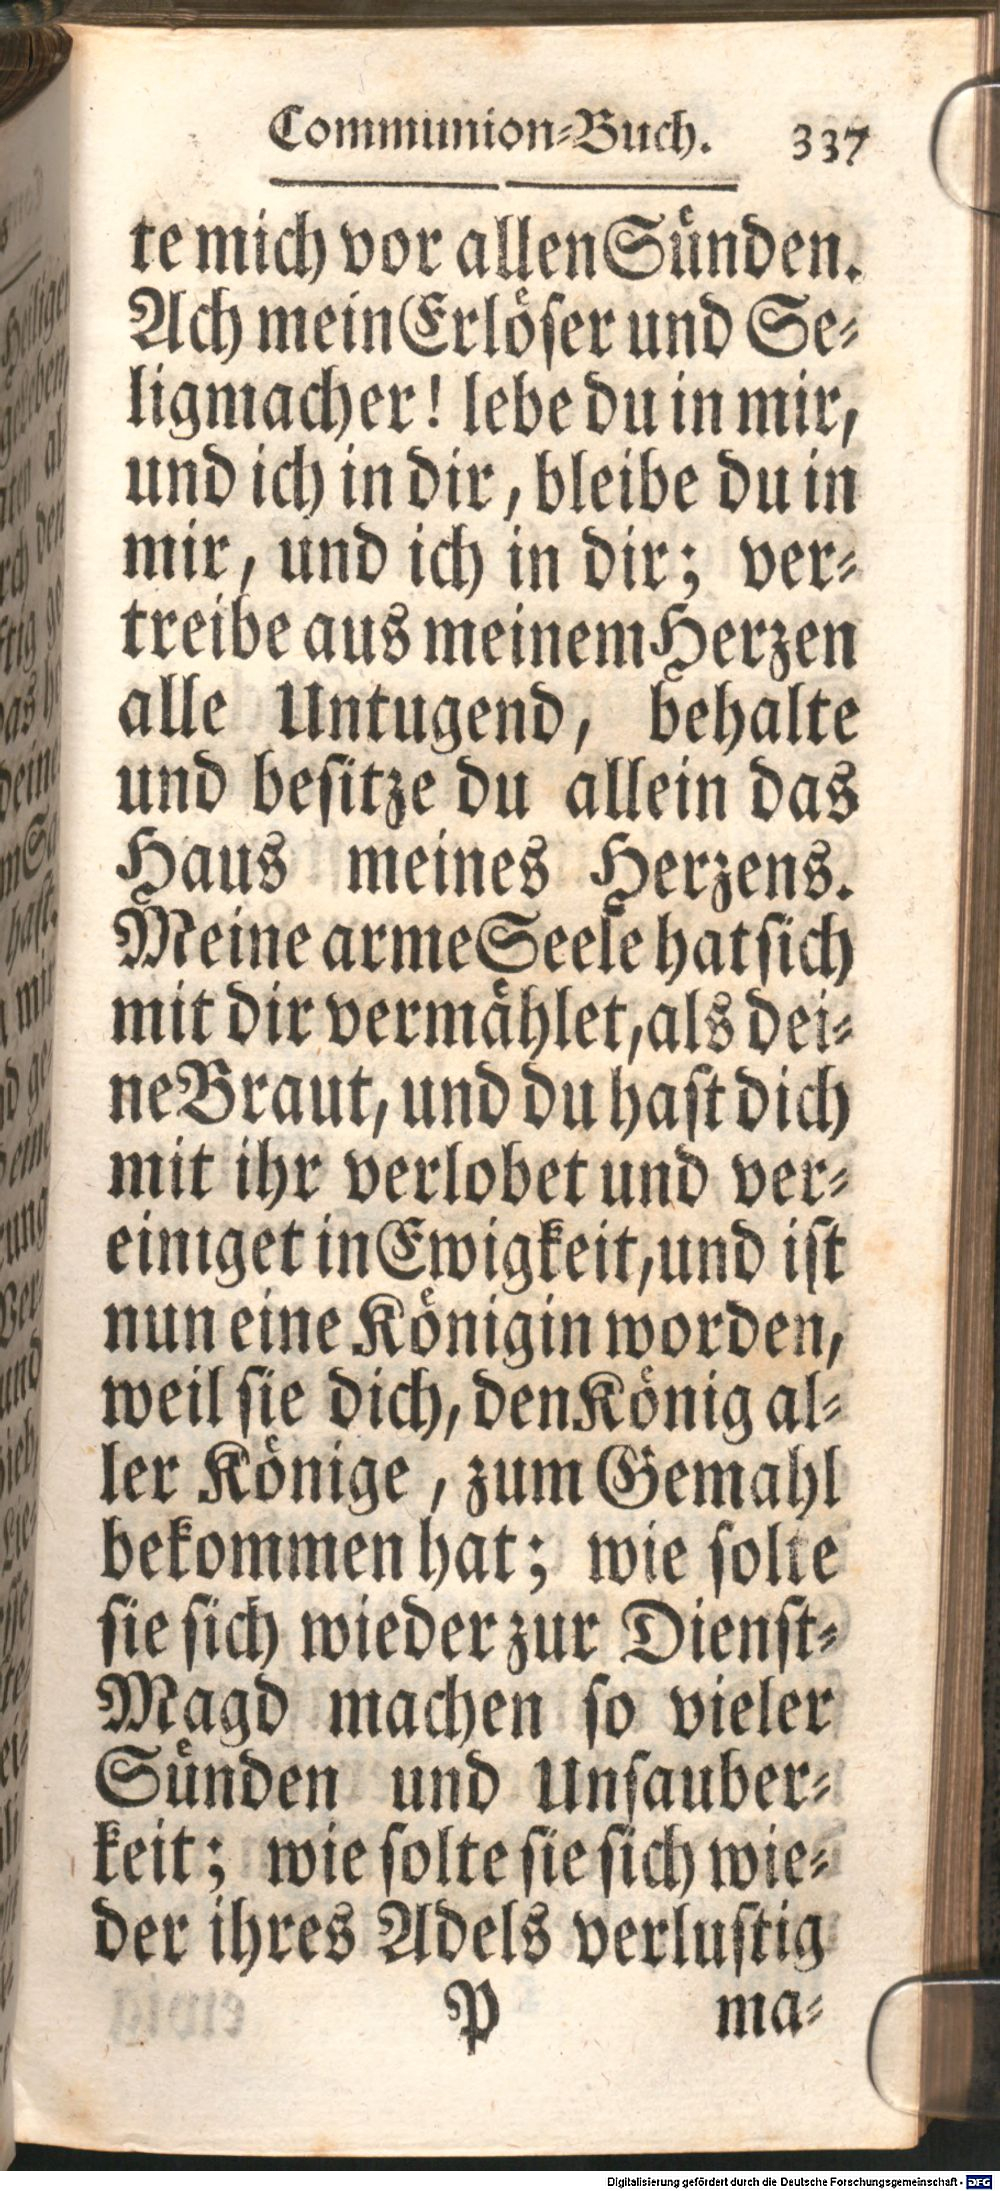 Communion-Buch. 337
te mich vor allen Sünden.
Ach mein Erlöser und Se-
ligmacher! lebe du in mir,
und ich in dir, bleibe du in
mir, und ich in dir; ver-
treibe aus meinem Herzen
alle Untugend, behalte
und besitze du allein das
Haus meines Herzens.
Meine arme Seele hat sich
mit dir vermählet, als dei-
ne Braut, und du hast dich
mit ihr verlobet und ver-
einiget in Ewigkeit, und ist
nun eine Königin worden,
weil sie dich, den König al-
ler Könige, zum Gemahl
bekommen hat; wie solte
sie sich wieder zur Dienst-
Magd machen so vieler
Sünden und Unsauber-
keit; wie solte sie sich wie-
der ihres Adels verlustig
P ma-
Digitalisierung gefördert durch die Deutsche Forschungsgemeinschaft - DFG